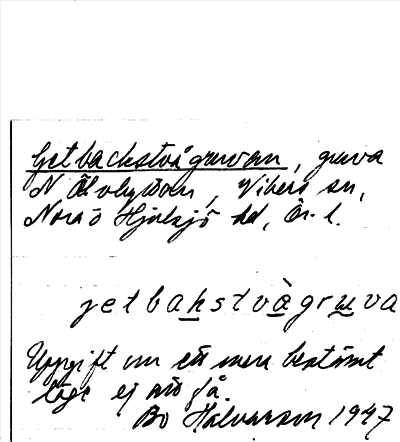 Getbackstvågruvan, gruva
N Älvhyttan, Vikers sn,
Nora o Hjulsjö hd, Ör. l.
jetbakstvàgruva
Uppgift om ett mera bestämt
läge ej att få.
Bo Halvarson 1947